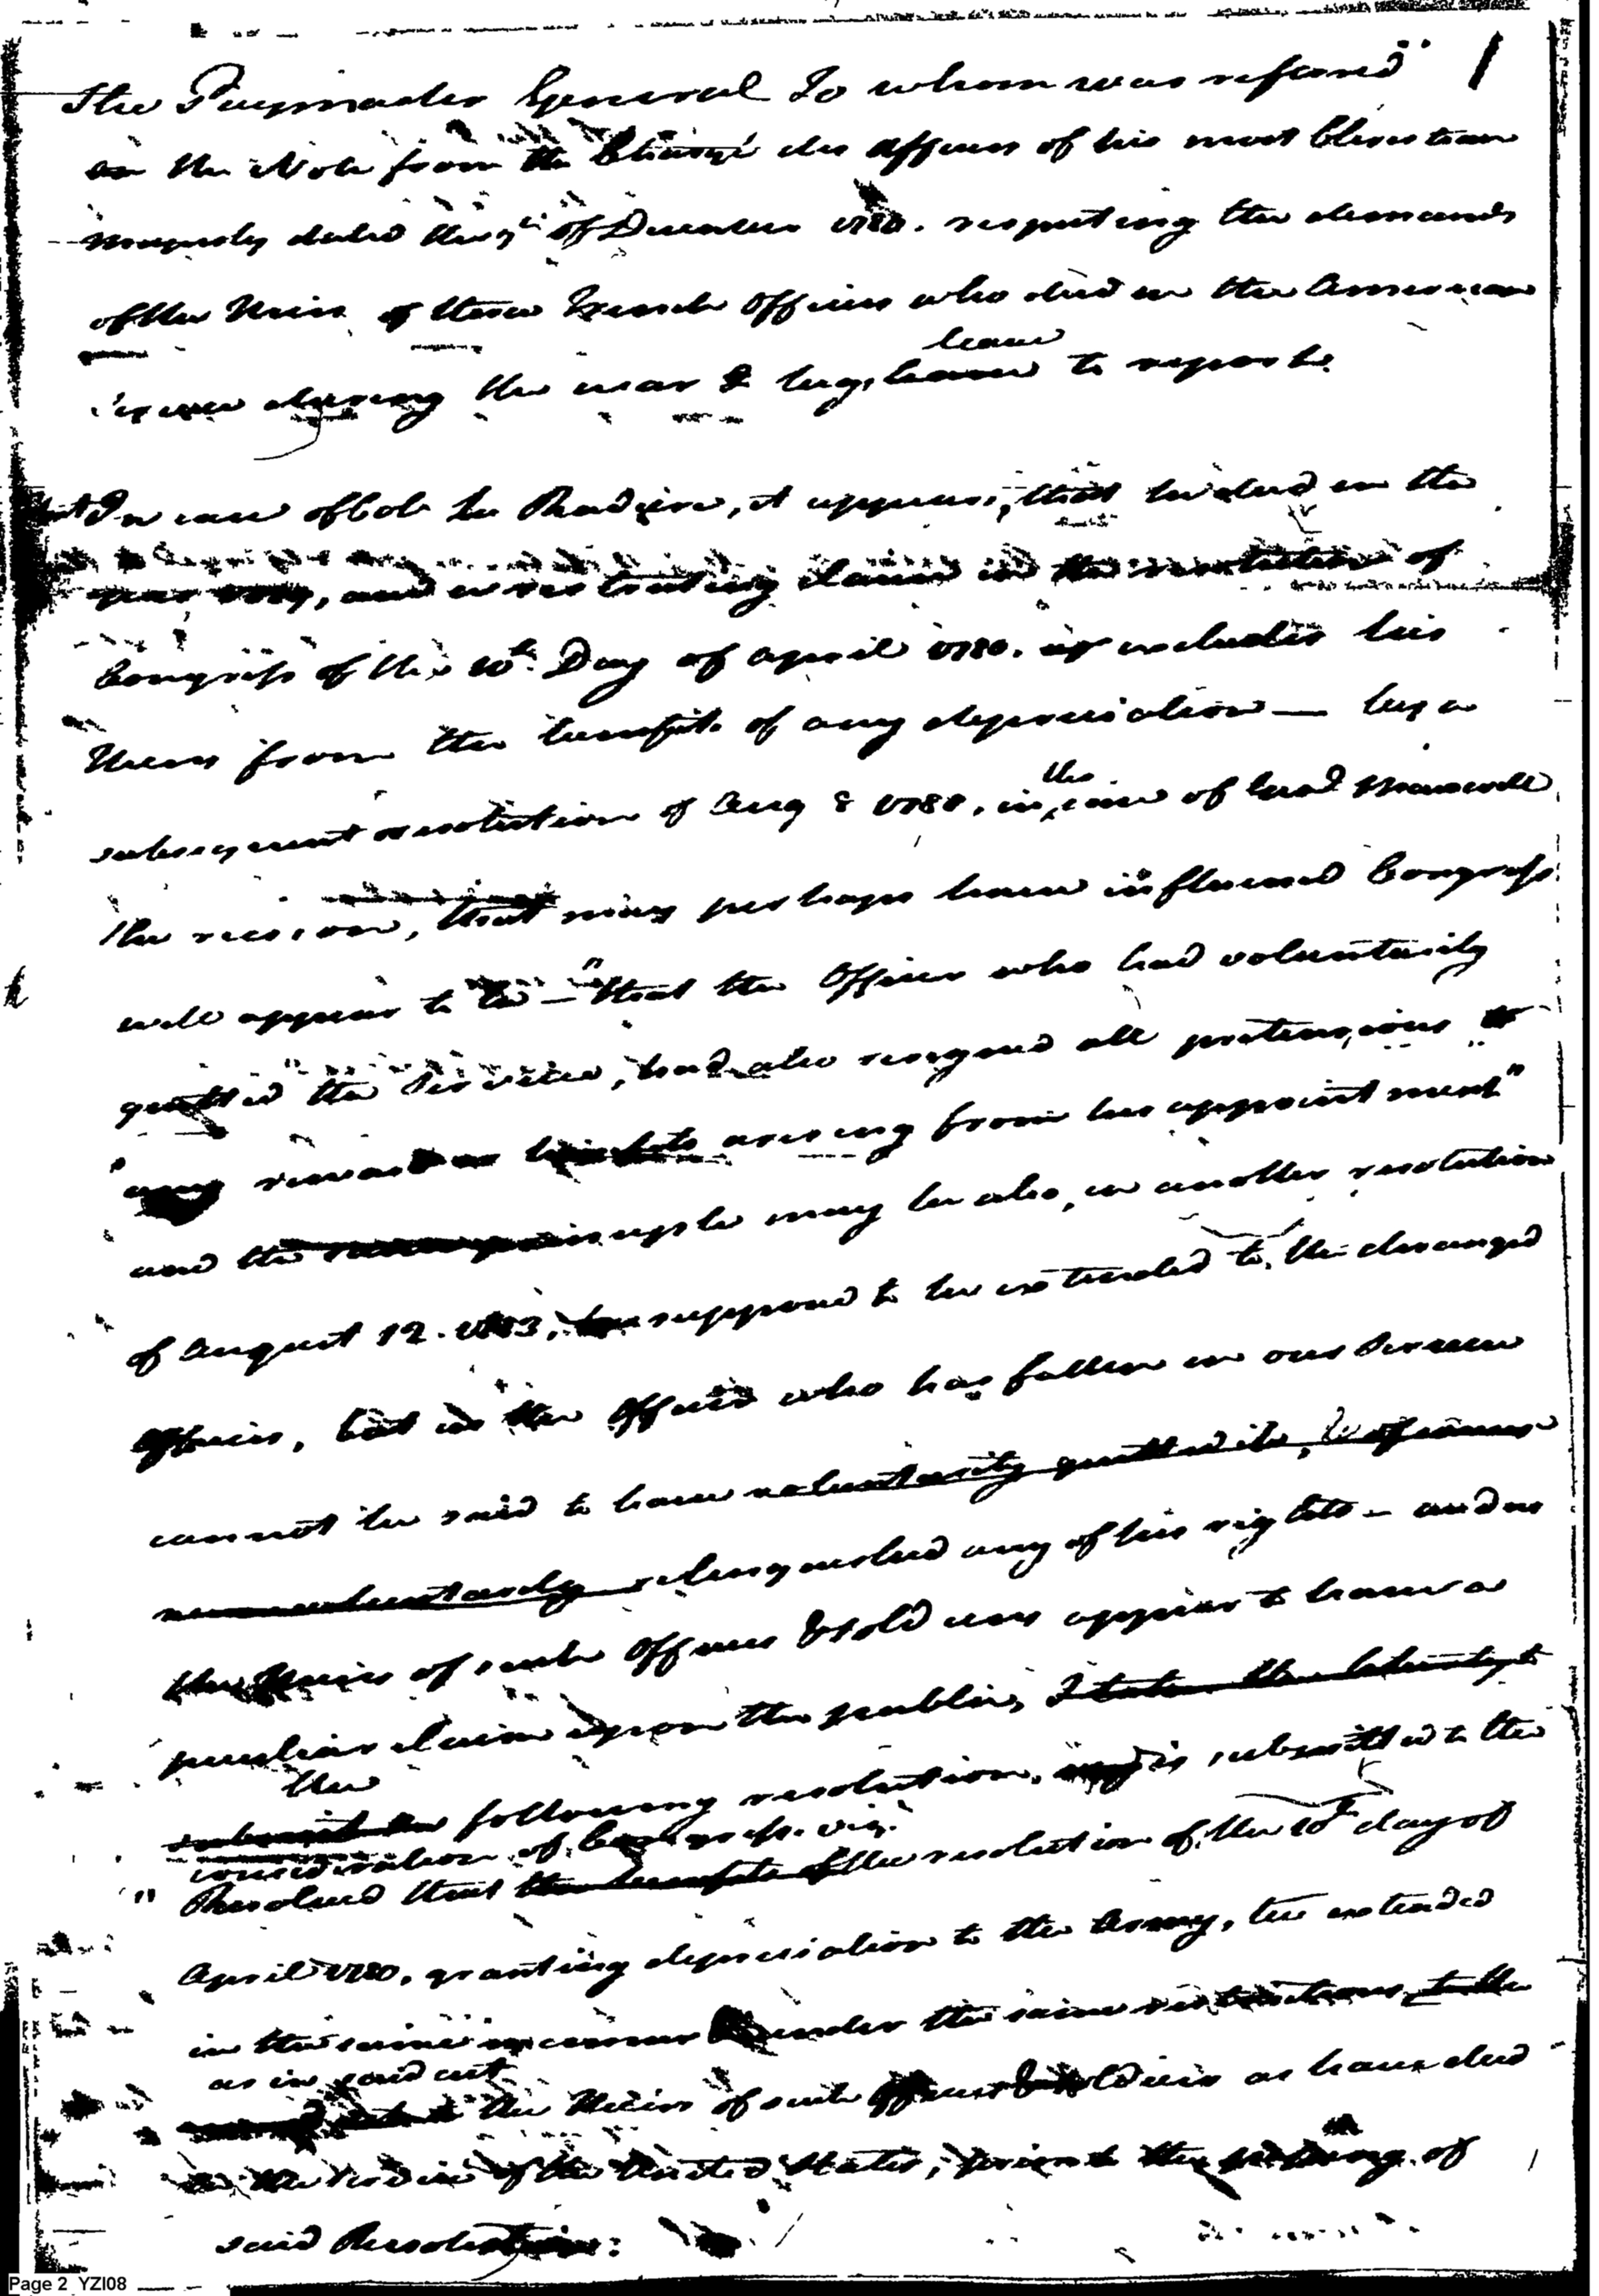 The Paymaster General To whom was referred 1
the Note from the Chargé des Affairs of his most Christian
majesty dated the 9th of December 1784. respecting the demands
of the Heirs of three French Officers who died in the American
service during the war & begs leave to report
leave
In case of Col. La Radiere, it appears, that he died in the
and a restricting clause in the resolution of
Congress of the 10th Day of April 1780. excludes his
Heirs from the benefit of any depreciation — by a
subsequent resolution of Aug 8 1780, in the case of
the reason, that may perhaps have influenced Congress
will appear to be — "that the Officer who had voluntarily
quitted the Service, had also resigned all pretensions to
"any reward or benefits arising from his appointment"
and the same principle may be also, in another resolution
of August 12. 1783, supposed to be extended to the deranged
Officers, but as the Officer who has fallen in our Service
cannot be said to have voluntarily quitted it, of course
voluntarily relinquished any of his rights — and as
the Heirs of such Officers & soldiers appear to have a
peculiar claim upon the public, I take the liberty to
the
submit the following resolution, is submitted to the
consideration of Congress. viz.
" Resolved that the benefits of the resolution of the 10th day of
April 1780, granting depreciation to the Army, be extended
in the same manner & under the same restrictions, to the
as in said act
the Heirs of such Officers & Soldiers as have died
in the service of the United States, prior to the passing of
said Resolution:
Page 2 YZI08